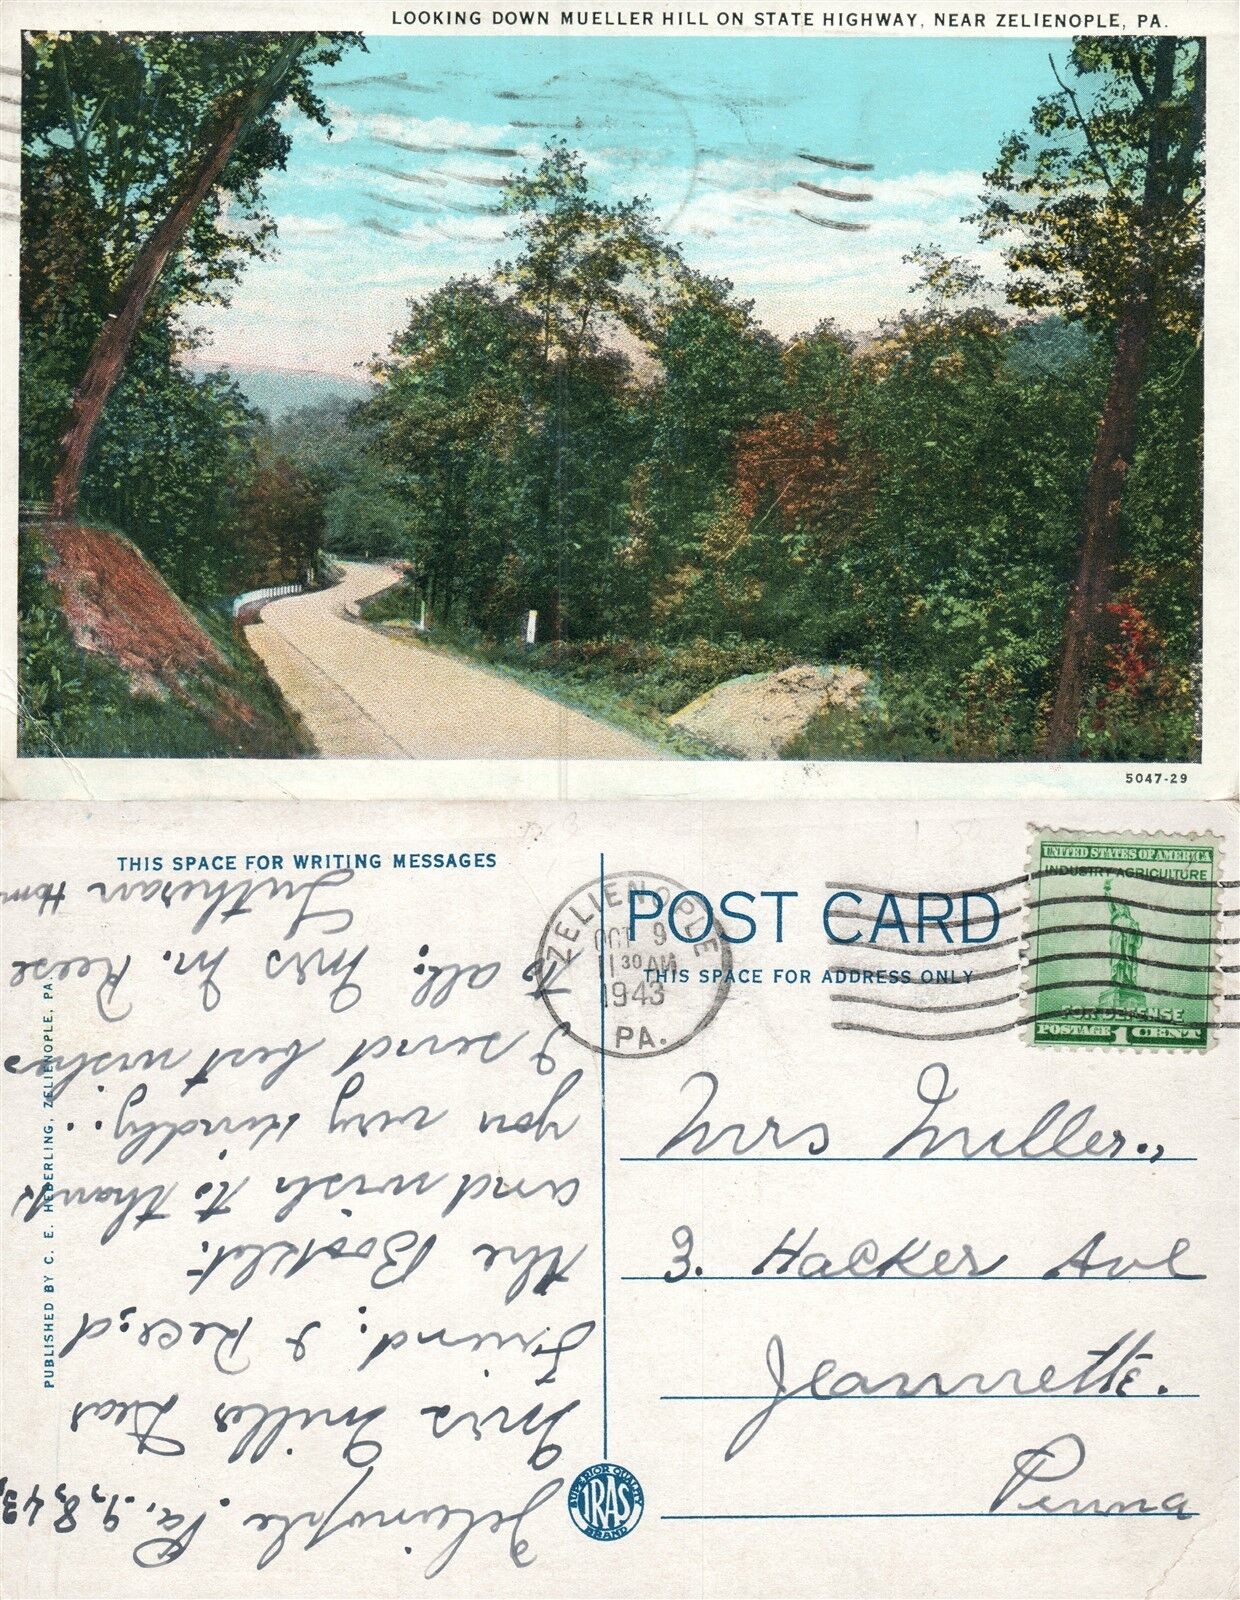 LOOKING DOWN MUELLER HILL ON STATE HIGHWAY, NEAR ZELIENOPLE, PA.
5047-29
THIS SPACE FOR WRITING MESSAGES
POST CARD
THIS SPACE FOR ADDRESS ONLY
ZELIENOPLE
OCT 9
11 30 AM
1943
PA.
UNITED STATES OF AMERICA
INDUSTRY AGRICULTURE
FOR DEFENSE
POSTAGE 1 CENT
Mrs Miller.,
3. Hacker Ave
Jeannette.
Penna
Zelienople Pa, 9, 8, 43,
Mrs Miller Dear
Friend. I Rece;d
the Booklet,
and wish to thank
you very kindly.
I send best wishes
to all. Mrs M. Reese
Lutheran Hom
PUBLISHED BY C. E. HEBERLING, ZELIENOPLE, PA.
SUPERIOR QUALITY
IRAS
BRAND